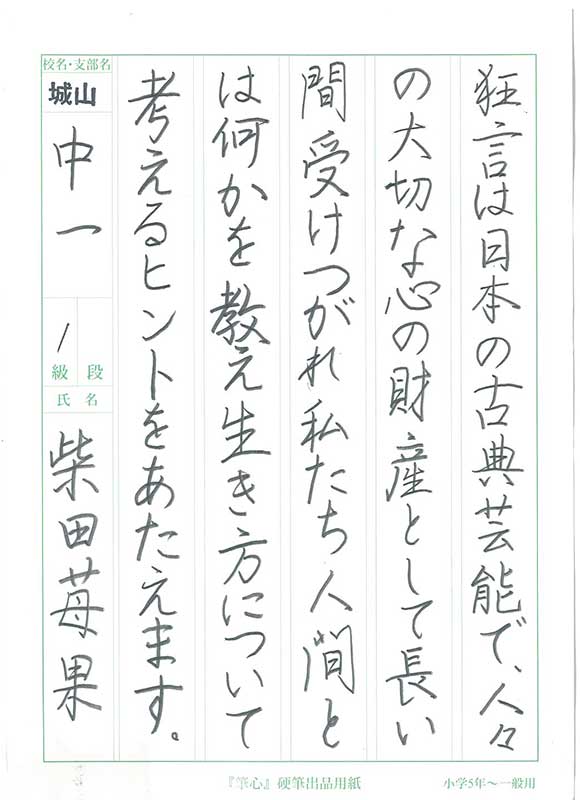 狂言は日本の古典芸能で、人々
の大切な心の財産として長い
間受けつがれ私たち人間と
は何かを教え生き方について
考えるヒントをあたえます。
校名・支部名
城山
中一
1
級 段
氏名
柴田苺果
『筆心』硬筆出品用紙
小学5年~一般用